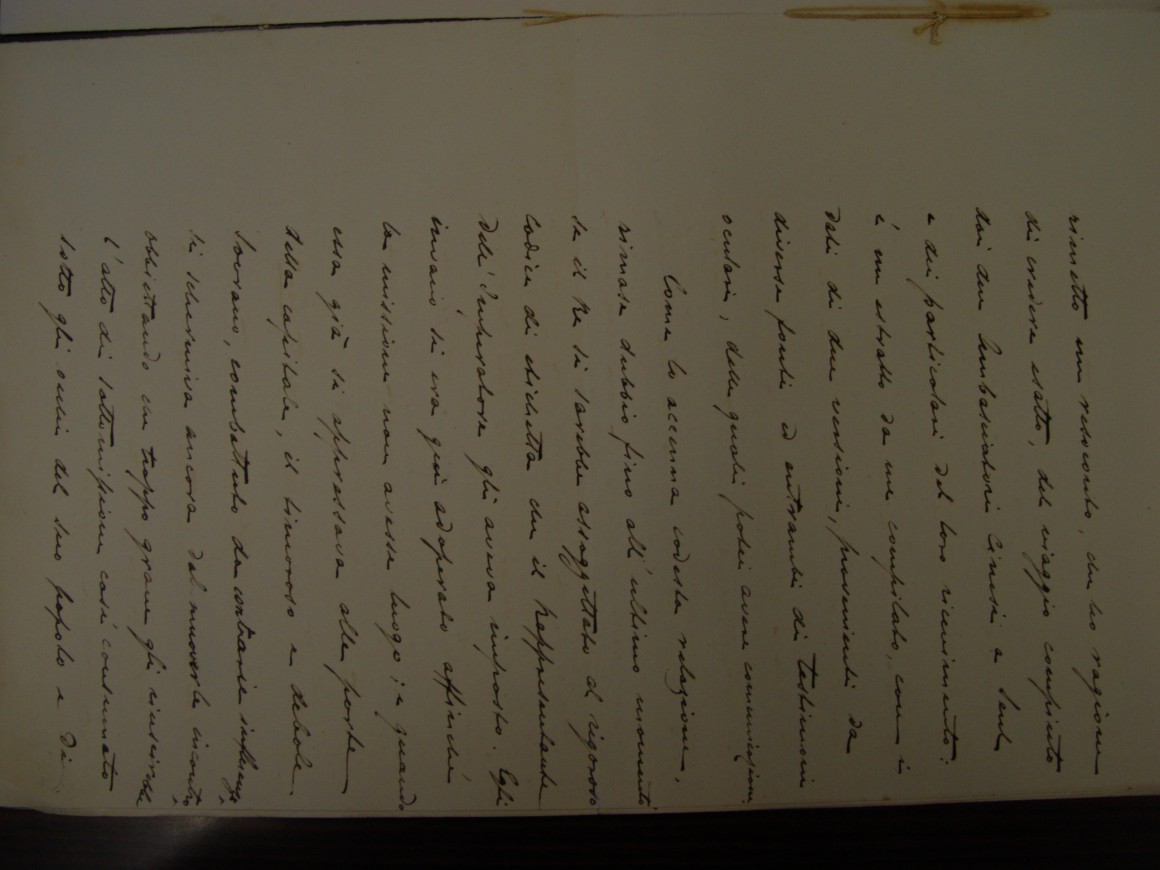 rimetto un resoconto, che ho ragione
di credere esatto, del viaggio compiuto
dai due Ambasciatori Cinesi a Seul
e dei particolari del loro ricevimento:
è un estratto da me compilato, con i
dati di due versioni, provenienti da
diverse fonti ed entrambi di testimoni
oculari, delle quali potei avere comunicazione.
Come lo accenna codesta relazione,
rimase dubbio fino all'ultimo momento
se il Re si sarebbe assoggettato al rigoroso
Codice di etichetta che il Rappresentante
dell'Imperatore gli aveva imposto. Egli
invano si era quì adoperato affinché
la missione non avesse luogo; e quando
essa già si appressava alle porte
della capitale, il timoroso e debole
Sovrano, combattuto da contrarie influenze,
si schermiva ancora dal muoverle incontro,
obbiettando che troppo grave gli riuscirebbe
l'atto di sottomissione così consumato
sotto gli occhi del suo popolo e di